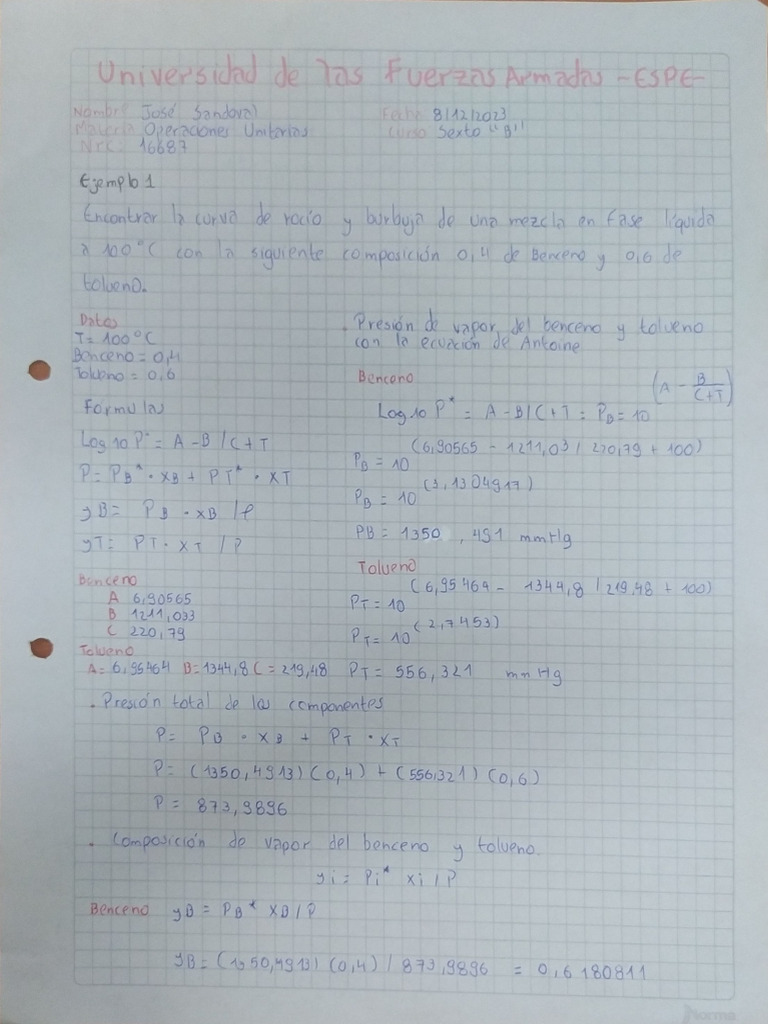 Universidad de las Fuerzas Armadas -ESPE-
Nombre José Sandoval Fecha 8/12/2023
Materia Operaciones Unitarias Curso Sexto "B"
Nrc: 16687
Ejemplo 1
Encontrar la curva de rocío y burbuja de una mezcla en fase líquida
a 100°C con la siguiente composición 0,4 de Benceno y 0,6 de
tolueno.
Datos
T= 100°C
Benceno = 0,4
Tolueno = 0,6
Formulas
Log10 P* = A - B / C + T
P= PB* · XB + PT* · XT
yB= PB · XB / P
yT= PT · XT / P
Benceno
A 6,90565
B 1211,033
C 220,79
Tolueno
A= 6,95464 B= 1344,8 C= 219,48
. Presión de vapor del benceno y tolueno
con la ecuación de Antoine
Benceno
Log10 P* = A - B / C + T : PB = 10 (A - B/C+T)
PB = 10 (6,90565 - 1211,03 / 220,79 + 100)
PB = 10 (3,1304917)
PB = 1350,491 mmHg
Tolueno
PT = 10 (6,95464 - 1344,8 / 219,48 + 100)
PT = 10 (2,7453)
PT = 556,321 mmHg
. Presión total de los componentes
P= PB · XB + PT · XT
P= (1350,4913)(0,4) + (556,321)(0,6)
P= 873,9896
. Composición de vapor del benceno y tolueno.
yi = Pi* xi / P
Benceno yB = PB* XB / P
yB = (1350,4913) (0,4) / 873,9896 = 0,6180811
Norma